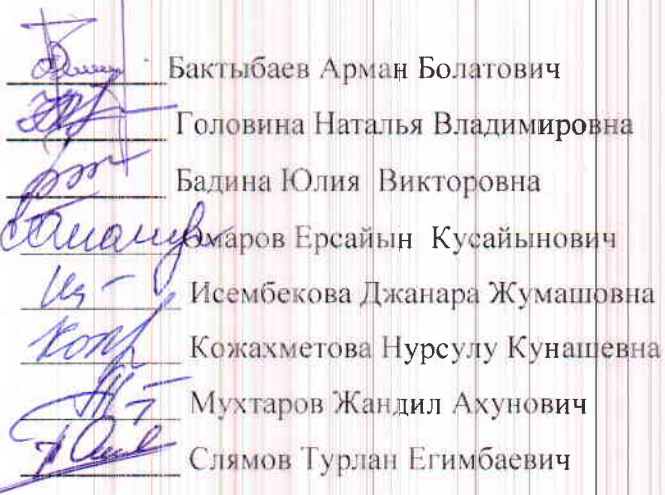 Бактыбаев Арман Болатович
Головина Наталья Владимировна
Бадина Юлия Викторовна
Омаров Ерсайын Кусайынович
Исембекова Джанара Жумашовна
Кожахметова Нурсулу Кунашевна
Мухтаров Жандил Ахунович
Слямов Турлан Егимбаевич